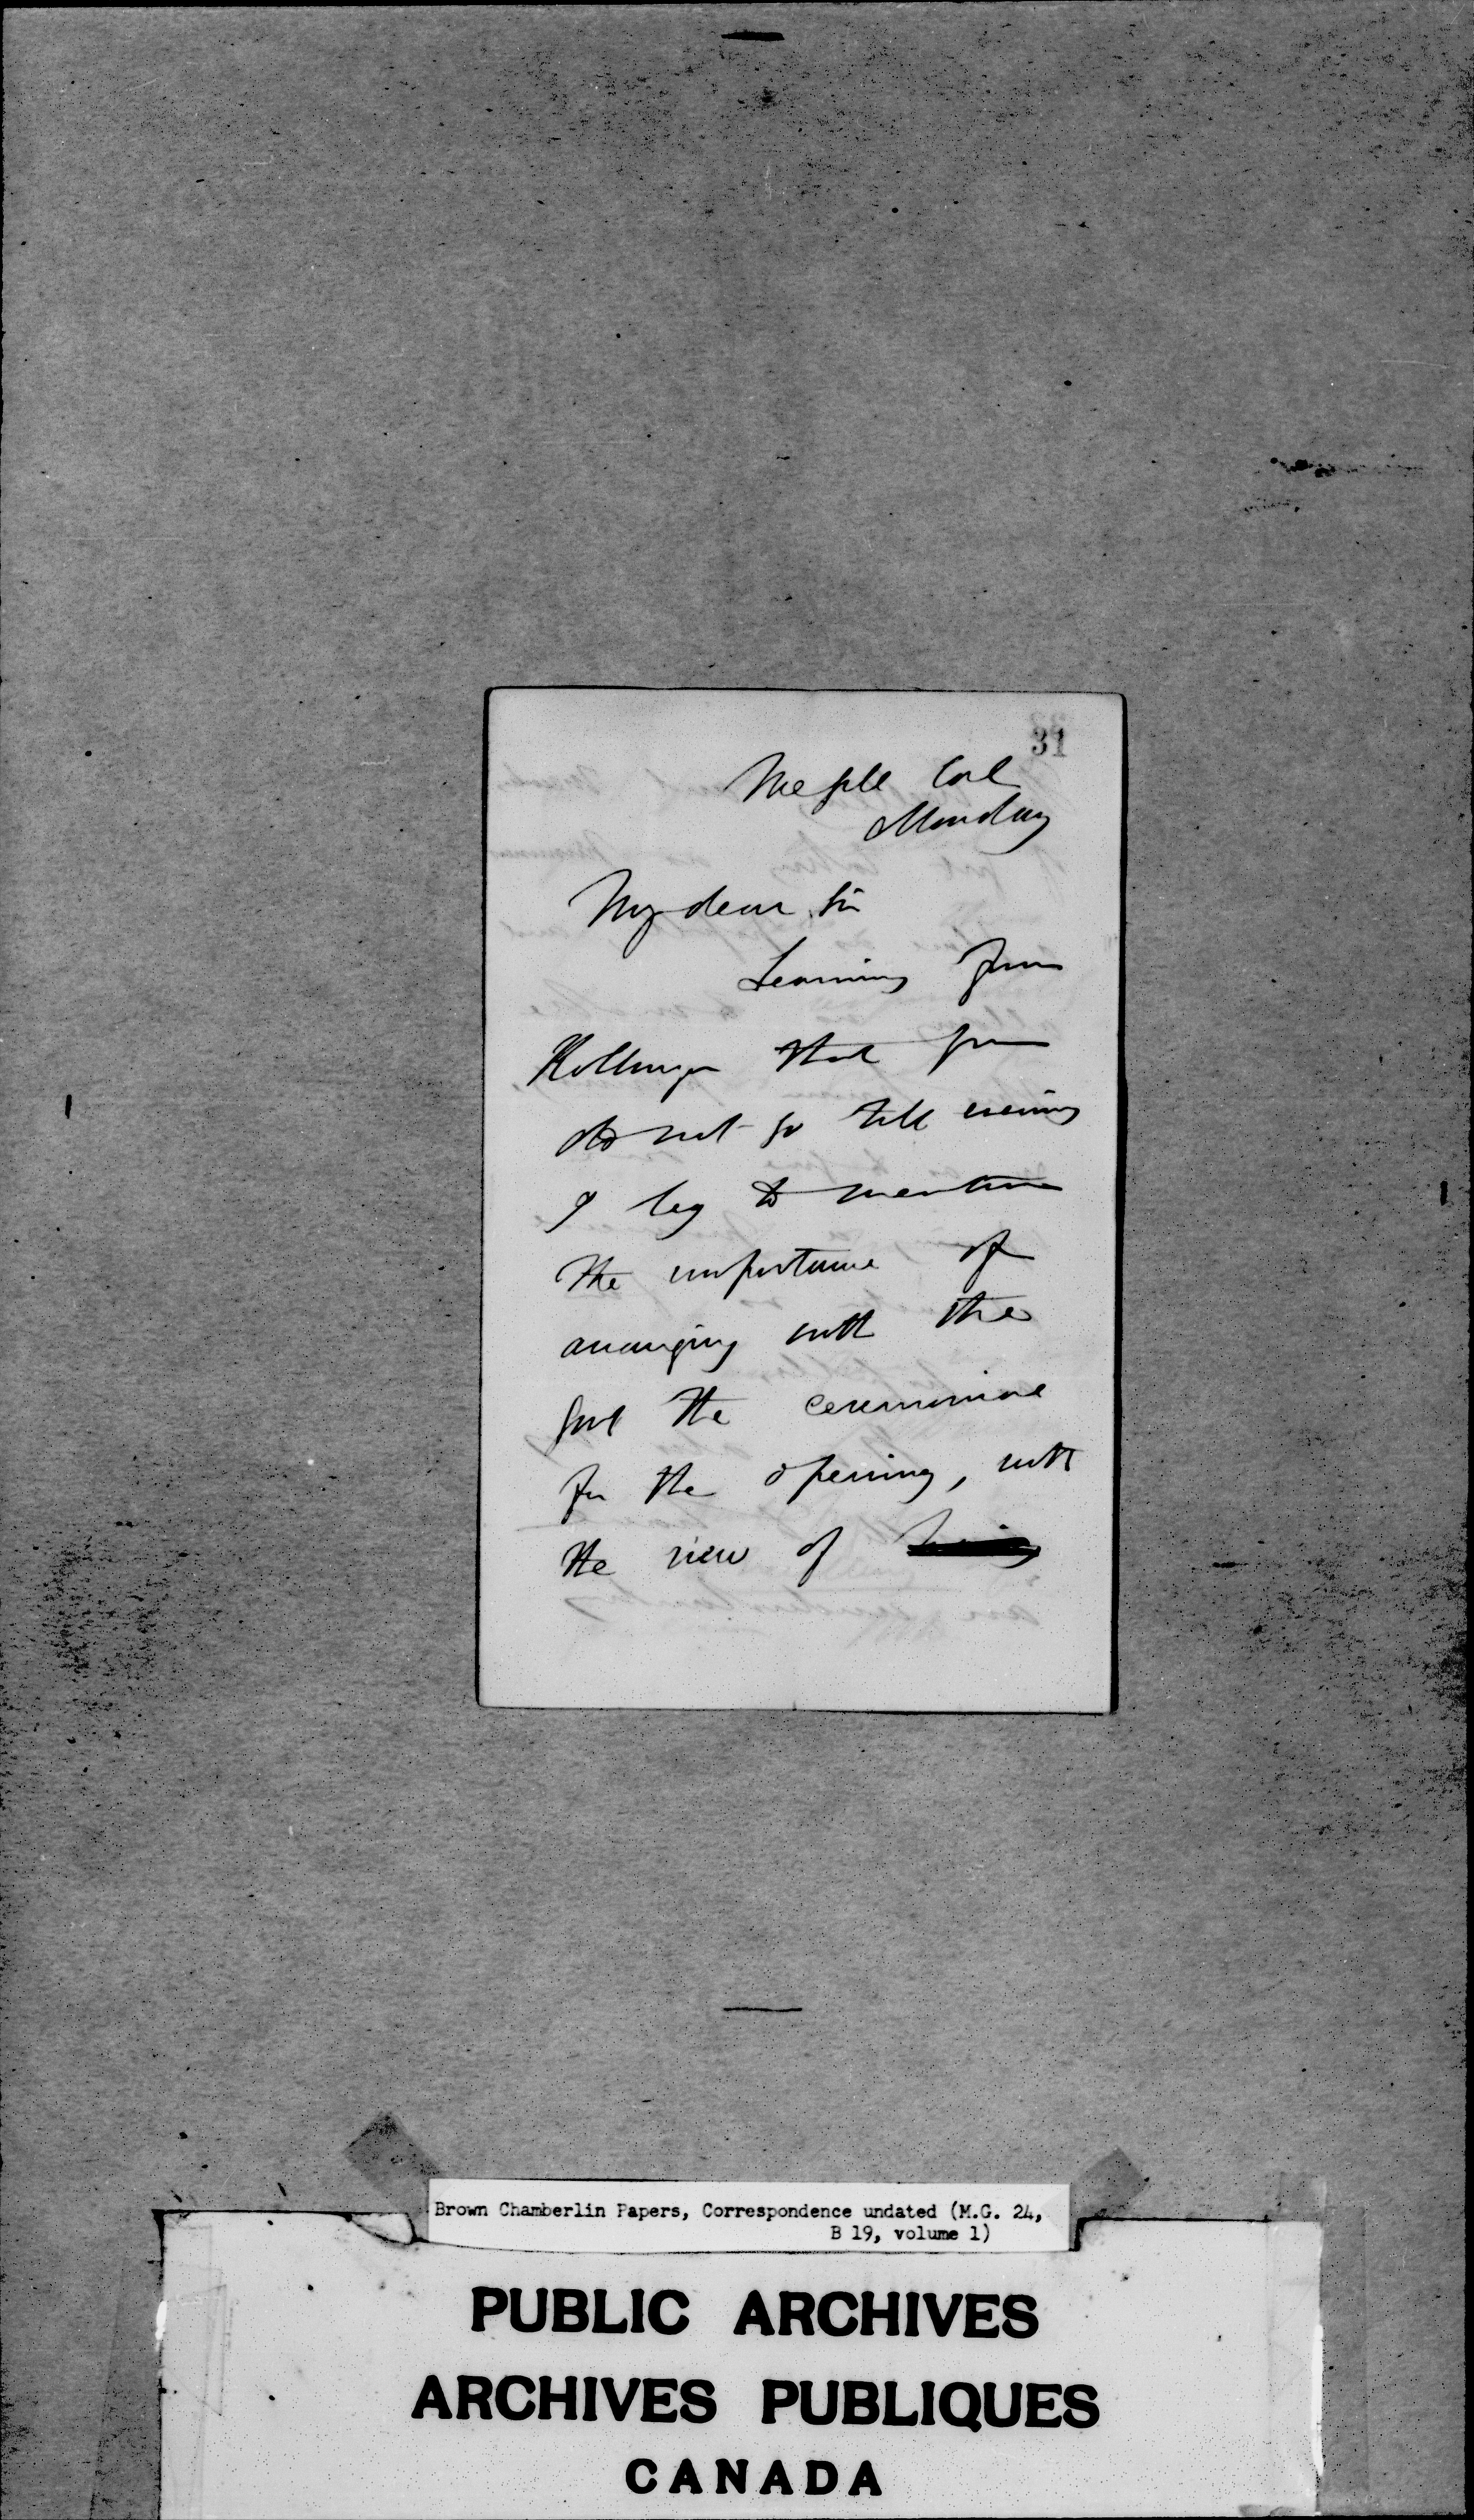 31
Monday
My dear Sir
Learning from
that you
do not go till evening
I beg to mention
the importance of
arranging with the
Govt the ceremonial
for the opening, with
the view of
Brown Chamberlin Papers, Correspondence undated (M.G. 24,
B 19, volume 1)
PUBLIC ARCHIVES
ARCHIVES PUBLIQUES
CANADA